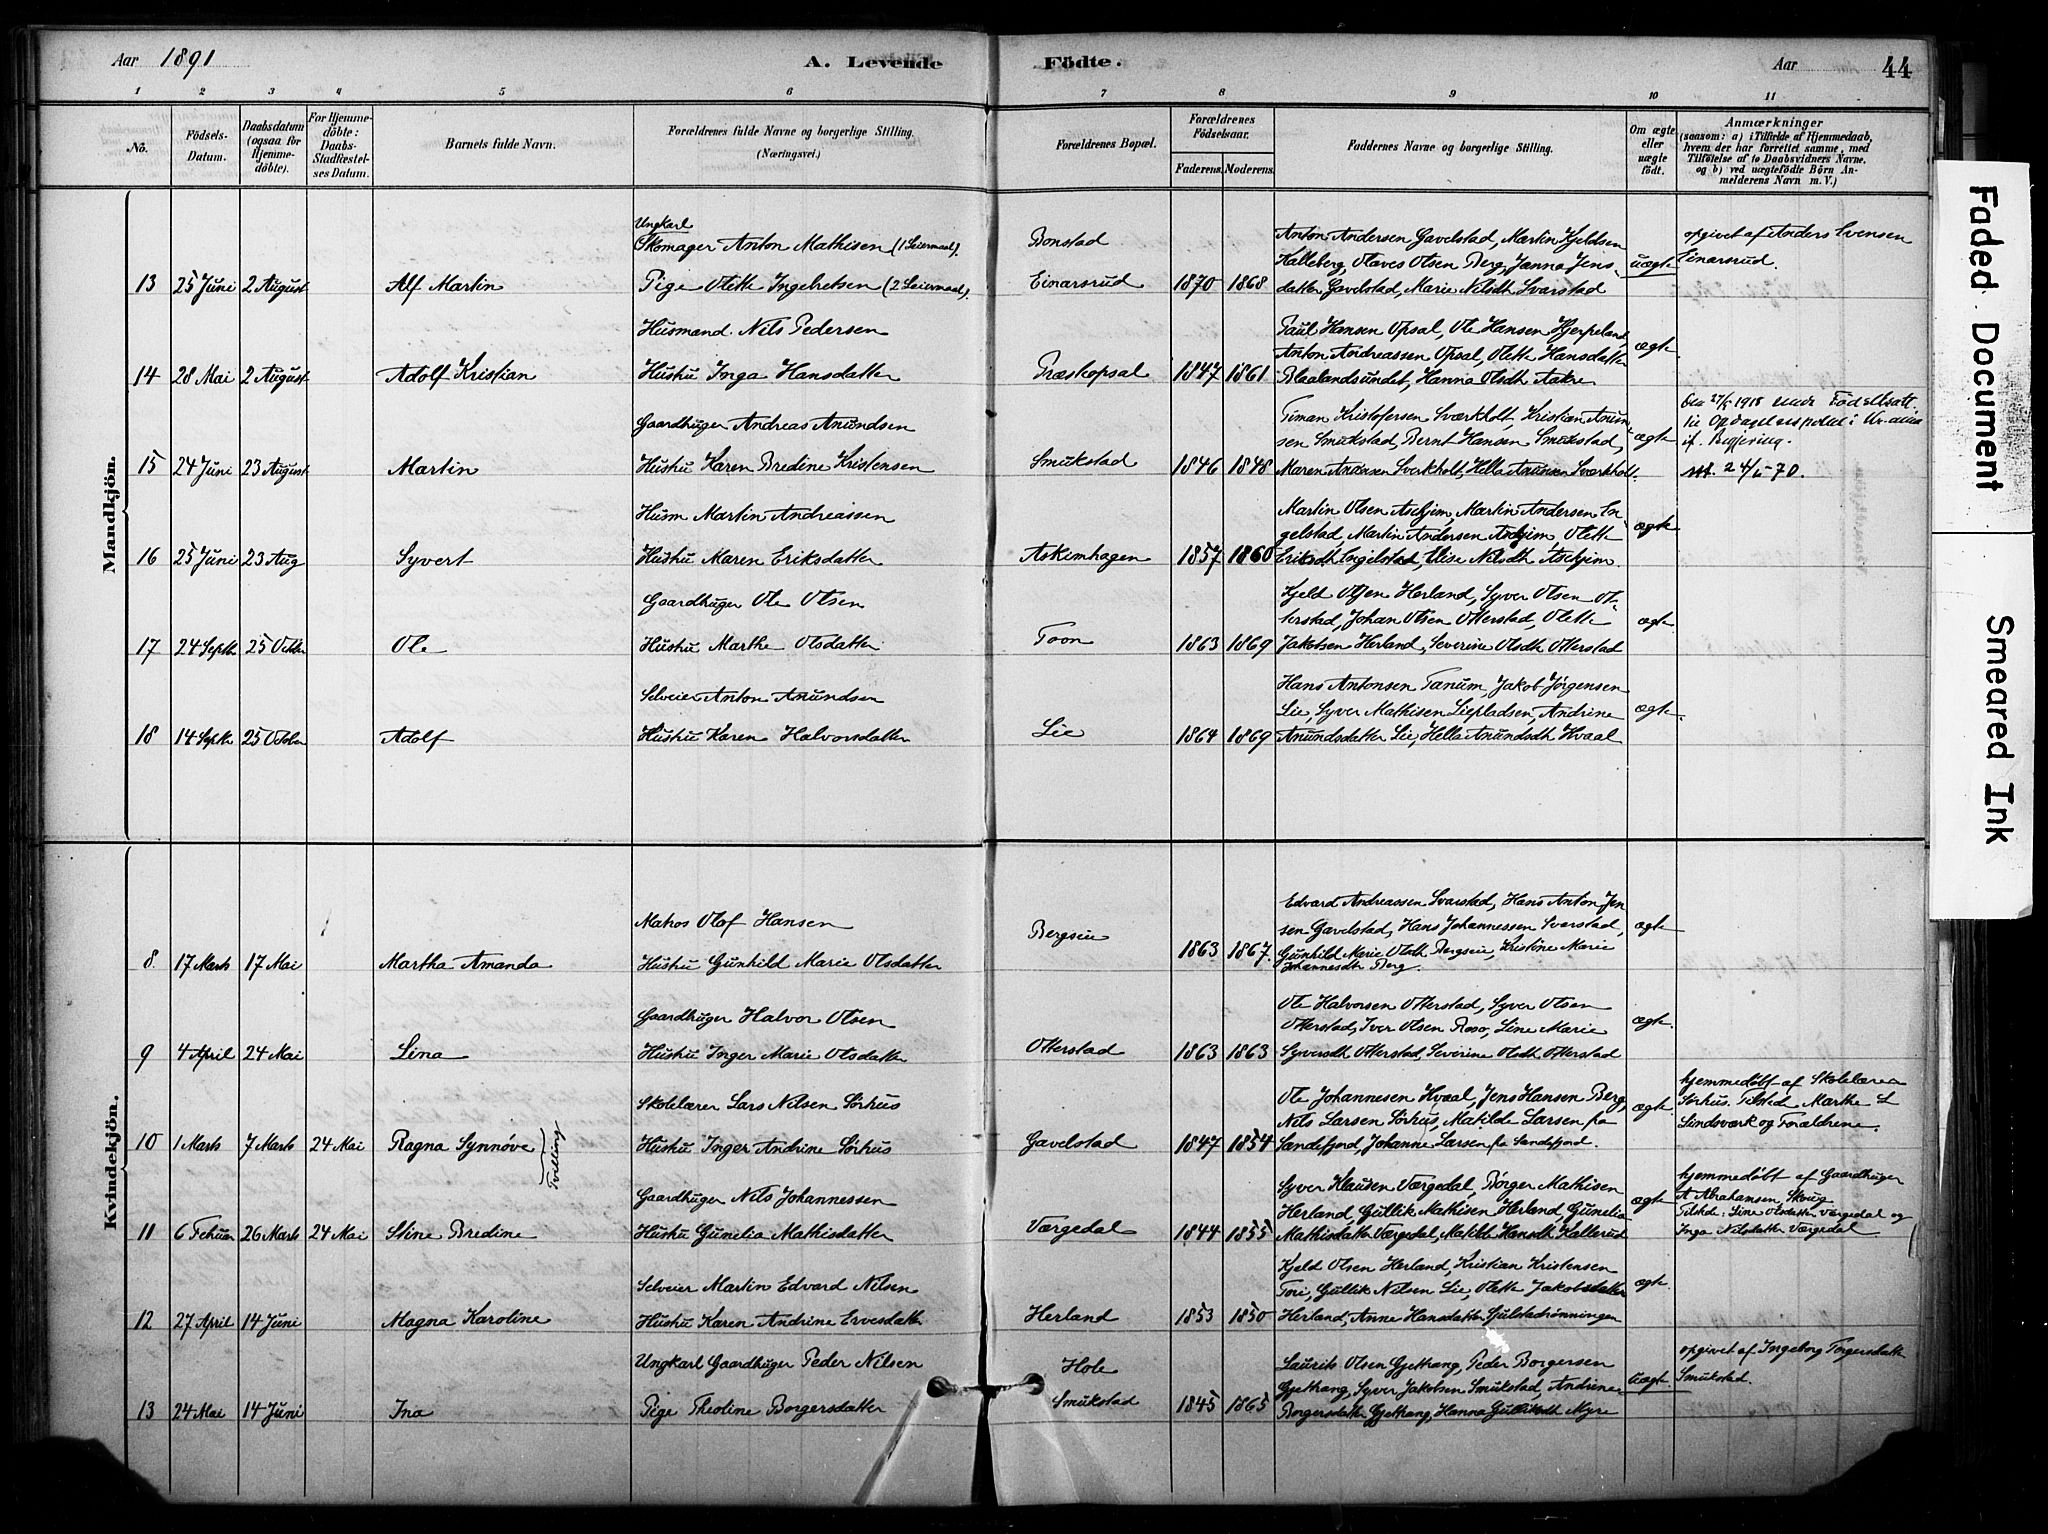 Aar 1891 A. Levende Födte. Aar 44
1 2 3 4 5 6 7 8 9 10 11
No.
Födsels-Datum.
Daabsdatum (ogsaa for Hjemme-döbte).
For Hjemme-döbte: Daabs-Stadfæstel-ses Datum.
Barnets fulde Navn.
Forældrenes fulde Navne og borgerlige Stilling. (Næringsvei.)
Forældrenes Bopæl.
Forældrenes Födselsaar.
Faderens. Moderens.
Faddernes Navne og borgerlige Stilling.
Om ægte eller uægte födt.
Anmærkninger
(saasom: a) i Tilfælde af Hjemmedaab,
hvem der har forrettet samme, med
Tilföielse af to Daabsvidners Navne,
og b) ved uægtefödte Börn An-
melderens Navn m. V.)
Mandkjön.
Ungkarl
Skomager Anton Mathisen (1 Leiermaal). Bonstad
Anton Andersen Gavelstad, Martin Kjeldsen
Halleberg, Olaves Olsen Berg, Janna Jens-
uægte
opgivet af Anders Svensen
Einarsrud.
13 25 Juni 2 August Alf Martin Pige Olette Ingebretsen (2 Leiermaal). Einarsrud 1870 1868 datter Gavelstad, Marie Nilsdt Svarstad
Husmand. Nils Pedersen
Paul Hansen Opsal, Ole Hansen Hjerpeland,
Anton Andreassen Opsal, Olette Hansdatter
ægte
14 28 Mai 2 August Adolf Kristian Hustru Inga Hansdatter Præskopsal 1847 1861 Blaalandsundet, Hanna Olsdt Aakre
Gaardbruger Andreas Anundsen
Timan Kristofersen Sværkholt, Kristian Anun-
sen Smukstad, Bernt Hansen Smukstad,
ægte
15 24 Juni 23 August Martin Hustru Karen Bredine Kristensen Smukstad 1846 1848 Maren Anunsen Sværkholt, Hella Anunsen Sværkholt.
Husm Martin Andreassen
Martin Olsen Askjem, Martin Andersen In-
gelstad, Martin Andersen Askjem, Olette
ægte
16 25 Juni 23 Aug Syvert Hustru Maren Eriksdatter Askimhagen 1857 1860 Eriksdt Ingelstad, Elise Nilsdt Askjem
Gaardbruger Ole Olsen
Kjeld Olsen Herland, Syver Olsen Ot-
terstad, Johan Olsen Otterstad, Olette
ægte
17 24 Septbr 25 Octbr Ole Hustru Marthe Olsdatter Toon 1863 1869 Jakobsen Herland, Severine Olsdt Otterstad
Selveier Anton Anundsen
Hans Antonsen Tanum, Jakob Jørgensen
Lie, Syver Mathisen Liepladsen, Andrine
ægte.
18 14 Septbr 25 Octbr Adolf Hustru Karen Halvorsdatter Lie 1864 1869 Anundsdatter Lie, Hella Anundsdt Hvaal
Kvindekjön.
Matros Olof Hansen Bergseie
Edvard Andreassen Svarstad, Hans Anton Jen
sen Gavelstad, Hans Johannessen Svarstad,
ægte
8. 17 Marts 17 Mai Martha Amanda Hustru Gunhild Marie Olsdatter 1863 1867. Gunhild Marie Olsdt Bergseie, Kristine Marie
Johannesdtr Berg.
Gaardbruger Halvor Olsen
Ole Halvorsen Otterstad, Syver Olsen
Otterstad, Iver Olsen Roso, Line Marie
ægte.
9 4 April 24 Mai Lina Hustru Inger Marie Olsdatter Otterstad 1863 1863 Syversdt Otterstad, Severine Olsdt Otterstad
Skolelærer Lars Nilsen Sørhus
Ole Johannesen Hvaal, Jens Hansen Berg,
Nils Larsen Sørhus, Matilde Larsen fra
ægte
hjemmedøbt af Skolelærer
Sørhus. Tilsted Marthe L
Lindsværk og Forældrene.
10 1 Marts 7 Marts 24 Mai Ragna Synnøve Tvilling Hustru Inger Andrine Sørhus Gavelstad 1847 1854 Sandefjord, Johanne Larsen fra Sandefjord.
Gaardbruger Nils Johannessen
Syver Klausen Værgedal, Børger Mathisen
Herland, Gullik Mathisen Herland, Gunelia
ægte
hjemmedøbt af Gaardbruger
A Abrahamsen Skoug
Tilsted. Line Olsdatter Værgedal og
Inga Nilsdatter Værgedal
11 6 Februar 26 Marts 24 Mai Stine Bredine Hustru Gunelia Mathisdatter Værgedal 1844 1855 Mathisdatter Værgedal, Matilde Hansdt Kallerud
Selveier Martin Edvard Nilsen
Kjeld Olsen Herland, Kristian Kristensen
Tori, Gullik Nilsen Lie, Olette Jakobsdatter
ægte.
12 27 April 14 Juni Magna Karoline Hustru Karen Andrine Ervesdatter Herland 1853 1850 Herland, Anne Hansdatter Gulstadrønningen
Ungkarl Gaardbruger Peder Nilsen Hole
Laurits Olsen Gjethang, Peder Borgersen
Gjethang, Syver Jakobsen Smukstad, Andrine
uægte
opgivet af Ingeborg Torgersdatter
Smukstad.
13 24 Mai 14 Juni Ina Pige Theoline Borgersdatter Smukstad 1845 1865 Borgersdatter Gjethang, Hanna Gulliksdt Myre
Faded Document
Smeared Ink